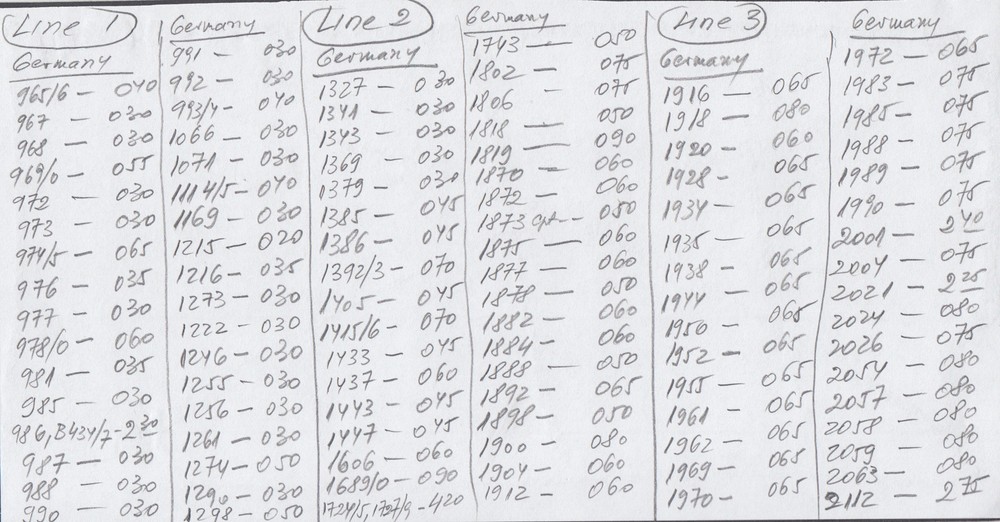 Line 1
Germany
965/6 — 040
967 — 030
968 — 030
969/0 — 055
972 — 030
973 — 030
974/5 — 065
976 — 035
977 — 030
978/0 — 060
981 — 035
985 — 030
986, B434/7 - 230
987 — 030
988 — 030
990 — 030
Germany
991 — 030
992 — 030
993/4 — 040
1066 — 030
1071 — 030
1114/5 — 040
1169 — 030
1215 — 020
1216 — 035
1273 — 030
1222 — 030
1246 — 030
1255 — 030
1256 — 030
1261 — 030
1274 — 050
1290 — 030
1298 — 050
Line 2
Germany
1327 — 030
1341 — 030
1343 — 030
1369 — 030
1379 — 030
1385 — 045
1386 — 045
1392/3 — 070
1405 — 045
1415/6 — 070
1433 — 045
1437 — 060
1443 — 045
1447 — 045
1606 — 060
1689/0 — 090
1724/5, 1727/9 - 420
Germany
1743 — 050
1802 — 075
1806 — 075
1818 — 050
1819 — 090
1870 — 060
1872 — 060
1873 — 050
1875 — 060
1877 — 060
1878 — 050
1882 — 060
1884 — 060
1888 — 050
1892 — 065
1898 — 050
1900 — 080
1904 — 060
1912 — 060
Line 3
Germany
1916 — 065
1918 — 080
1920 — 060
1928 — 065
1934 — 065
1935 — 065
1938 — 065
1944 — 065
1950 — 065
1952 — 065
1955 — 065
1961 — 065
1962 — 065
1969 — 065
1970 — 065
Germany
1972 — 065
1983 — 075
1985 — 075
1988 — 075
1989 — 075
1990 — 075
2001 — 240
2004 — 075
2021 — 225
2024 — 080
2026 — 075
2054 — 080
2057 — 080
2058 — 080
2059 — 080
2063 — 080
2112 — 275